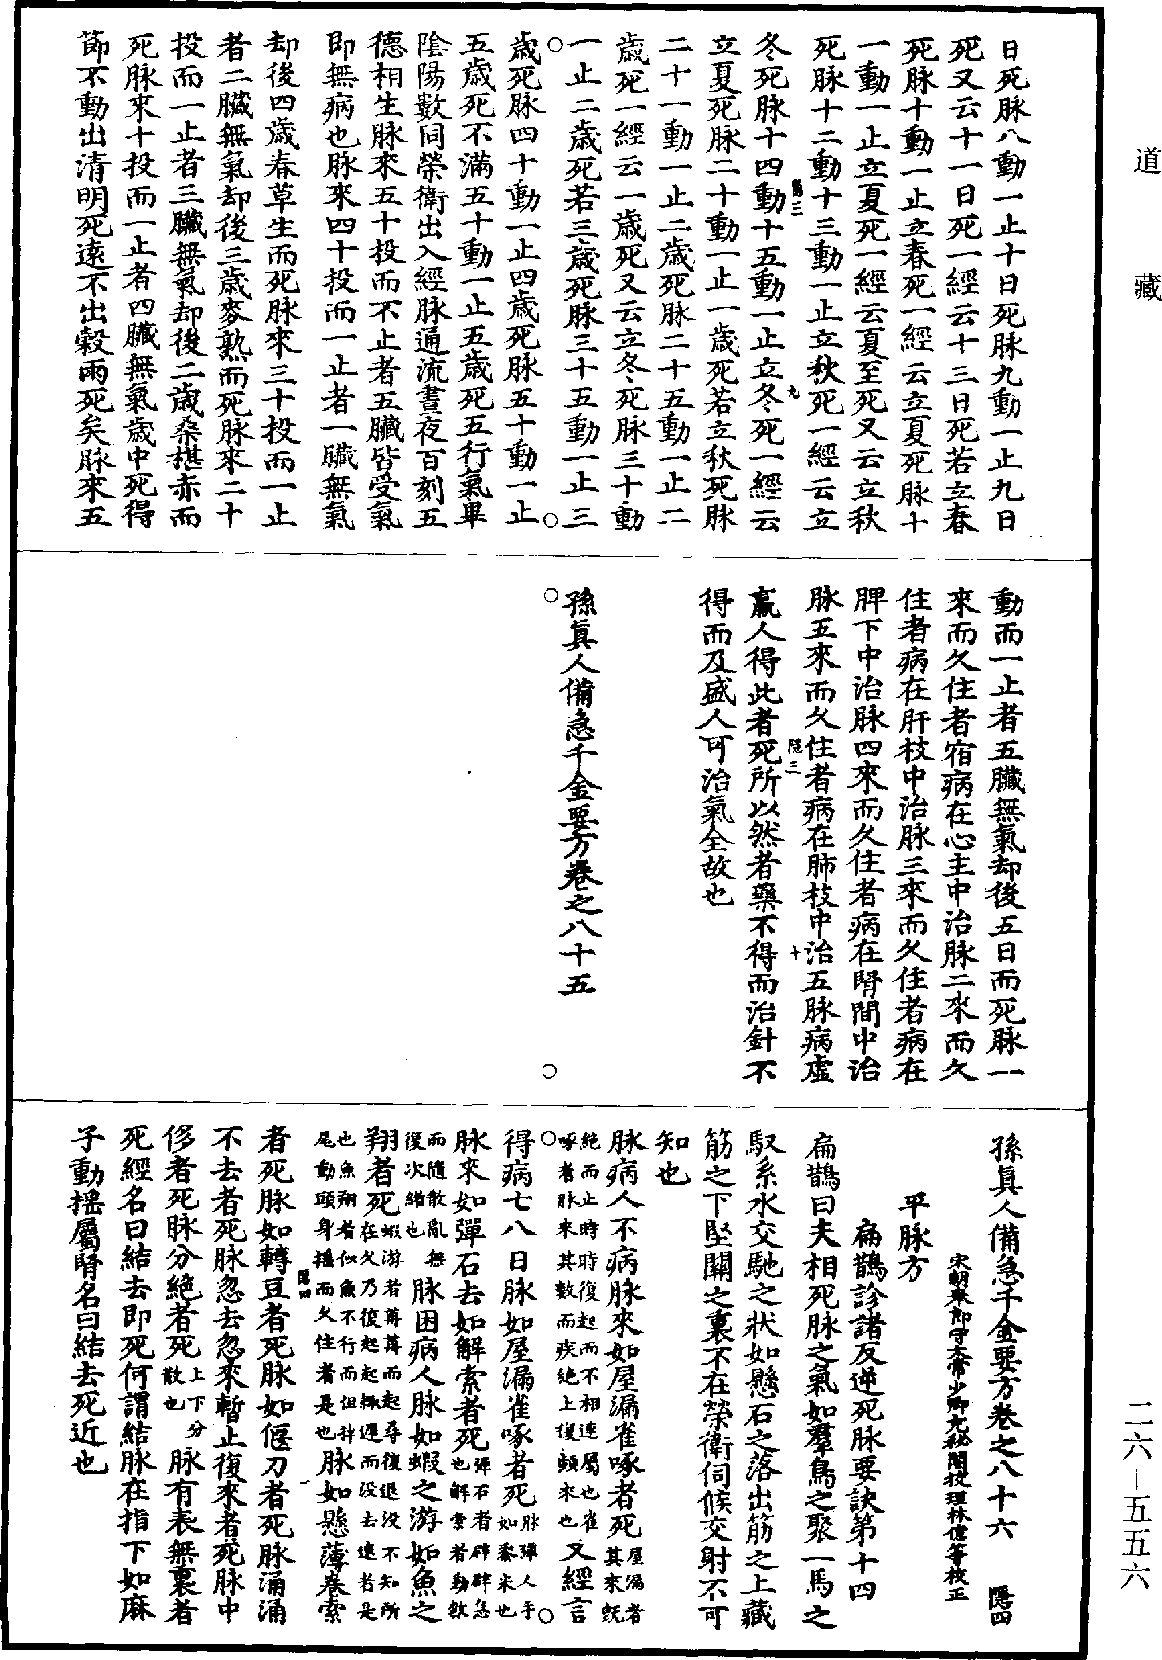 道藏
日死脉八動一止十日死脉九動一止九日
死又云十一日死一經云十三日死若立春
死脉十動一止立春死一經云立夏死脉十
一動一止立夏死一經云夏至死又云立秋
死脉十二動十三動一止立秋死一經云立
冬死脉十四動十五動一止立冬死一經云
立夏死脉二十動一止一歲死若立秋死脉
二十一動一止二歲死脉二十五動一止二
歲死一經云一歲死又云立冬死脉三十動
一止二歲死若三歲死脉三十五動一止三
歲死脉四十動一止四歲死脉五十動一止
五歲死不滿五十動一止五歲死五行氣畢
陰陽數同榮衛出入經脉通流晝夜百刻五
德相生脉來五十投而不止者五臟皆受氣
即無病也脉來四十投而一止者一臟無氣
却後四歲春草生而死脉來三十投而一止
者二臟無氣却後三歲麥熟而死脉來二十
投而一止者三臟無氣却後二歲桑椹赤而
死脉來十投而一止者四臟無氣歲中死得
節不動出清明死遠不出穀雨死矣脉來五
動而一止者五臟無氣却後五日而死脉一
來而久住者宿病在心主中治脉二來而久
住者病在肝枝中治脉三來而久住者病在
脾下中治脉四來而久住者病在腎間中治
脉五來而久住者病在肺枝中治五脉病虛
羸人得此者死所以然者藥不得而治針不
得而及盛人可治氣全故也
孫真人備急千金要方卷之八十五
孫真人備急千金要方卷之八十六 隱四
宋朝奉郎守太常少卿充秘閣校理林億等校正
平脉方
扁鵲診諸反逆死脉要訣第十四
扁鵲曰夫相死脉之氣如羣鳥之聚一馬之
馭系水交馳之狀如懸石之落出筋之上藏
筋之下堅關之裏不在榮衛伺候交射不可
知也
脉病人不病脉來如屋漏雀啄者死屋漏者其來既
絕而止時時復起而不相連屬也雀啄者脉來甚數而疾絕止復頓來也又經言
得病七八日脉如屋漏雀啄者死脉彈人手如黍米也
脉來如彈石去如解索者死彈石者辟辟急也解索者動數
而隨散亂無復次緒也脉困病人脉如蝦之游如魚之
翔者死蝦游者苒苒而起尋復退没不知所在久乃復起起輒遲而没去速者是
也魚翔者似魚不行而但掉尾動頭身搖而久住者是也脉如懸薄卷索
者死脉如轉豆者死脉如偃刀者死脉涌涌
不去者死脉忽去忽來暫止復來者死脉中
侈者死脉分絕者死上下分散也脉有表無裏者
死經名曰結去即死何謂結脉在指下如麻
子動搖屬腎名曰結去死近也
二六—五五六